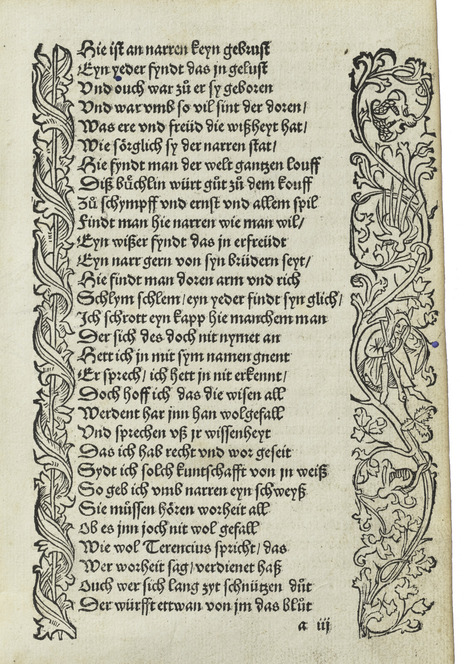 Hie ist an narren keyn gebrust
Eyn yeder fyndt das jn gelust
Vnd ouch war zů er sy geboren
Vnd war vmb so vil sint der doren/
Was ere vnd freüd die wißheyt hat/
Wie sörglich sy der narren stat/
Hie fyndt man der welt gantzen louff
Diß büchlin würt gůt zů dem kouff
Zů schympff vnd ernst vnd allem spil
Findt man hie narren wie man wil/
Eyn wißer fyndt das jn erfreüdt
Eyn narr gern von syn brüdern seyt/
Hie findt man doren arm vnd rich
Schlym schlem/ eyn yeder findt syn glich/
Jch schrott eyn kapp hie manchem man
Der sich des doch nit nymet an
Hett ich jn mit sym namen gnent
Er sprech/ ich hett jn nit erkennt/
Doch hoff ich das die wisen all
Werdent har jnn han wolgefall
Vnd sprechen vß jr wissenheyt
Das ich hab recht vnd wor geseit
Sydt ich solch kuntschafft von jn weiß
So geb ich vmb narren eyn schweyß
Sie müssen hören worheit all
Ob es jnn joch nit wol gefall
Wie wol Terencius spricht/ das
Wer worheit sag/ verdienet haß
Ouch wer sich lang zyt schnützen důt
Der würfft ettwan von jm das blůt
a iij